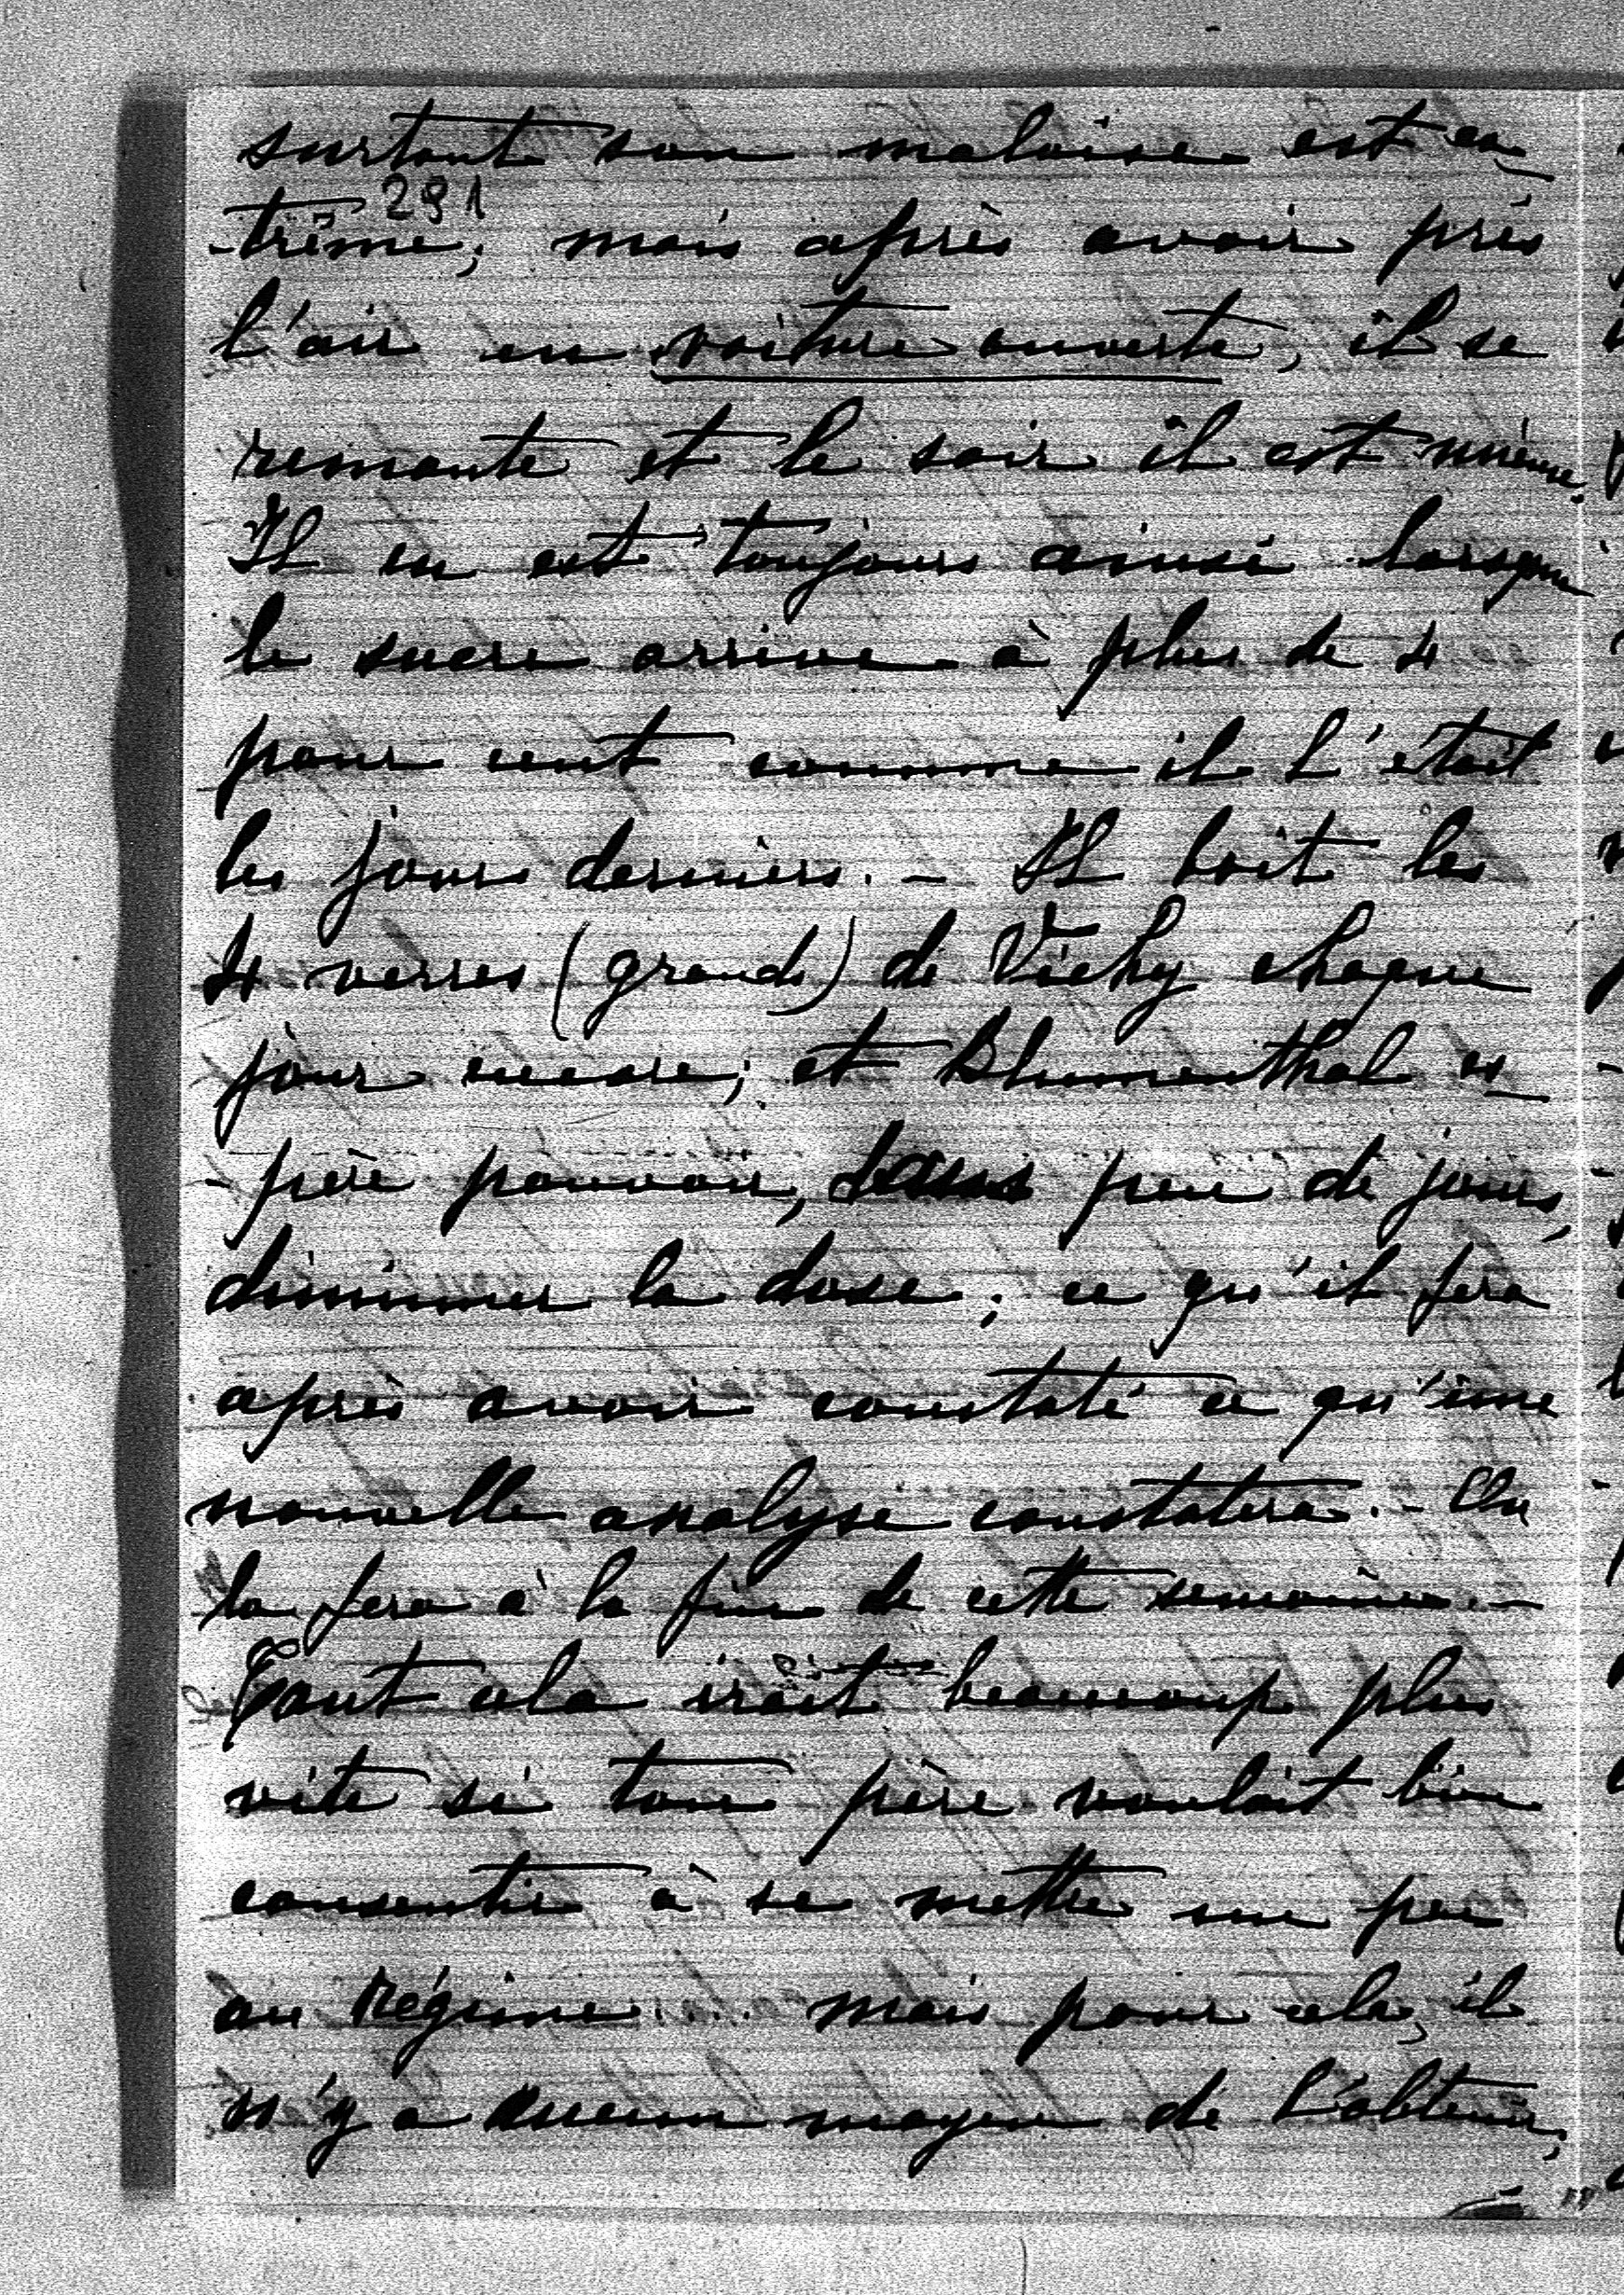 surtout son malaise est ex-
291
-trême; mais après avoir pris
l'air en voiture ouverte, il se
remonte et le soir il est mieux.
Il en est toujours ainsi lorsque
le sucre arrive à plus de 4
pour cent comme il l'était
les jours derniers. - Il boit les
4 verres (grands) de Vichy chaque
jour encore; et Blumenthal es-
-père pouvoir, dans peu de jours,
diminuer la dose; ce qu'il fera
après avoir constaté ce qu'une
nouvelle analyse constatera. - On
la fera à la fin de cette semaine. -
Tout cela irait beaucoup plus
vite si ton père voulait bien
consentir à se mettre un peu
au régime.... mais pour cela, il
n'y a aucun moyen de l'obtenir;